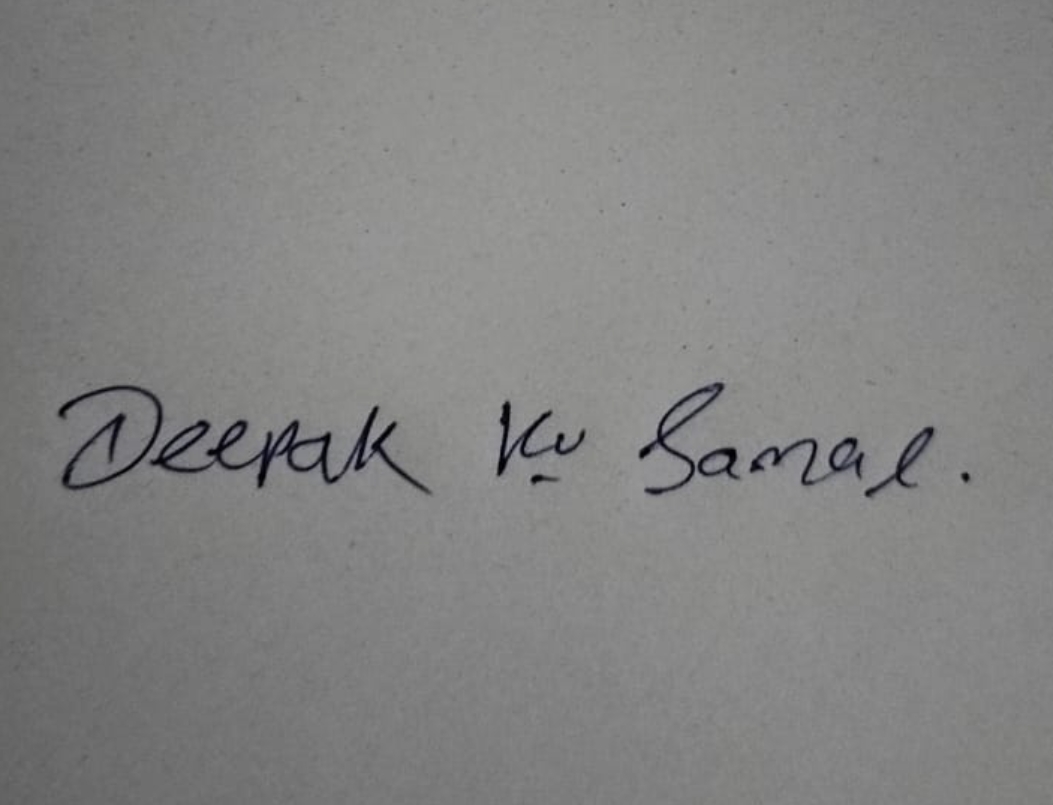 Deepak Ku Samal.